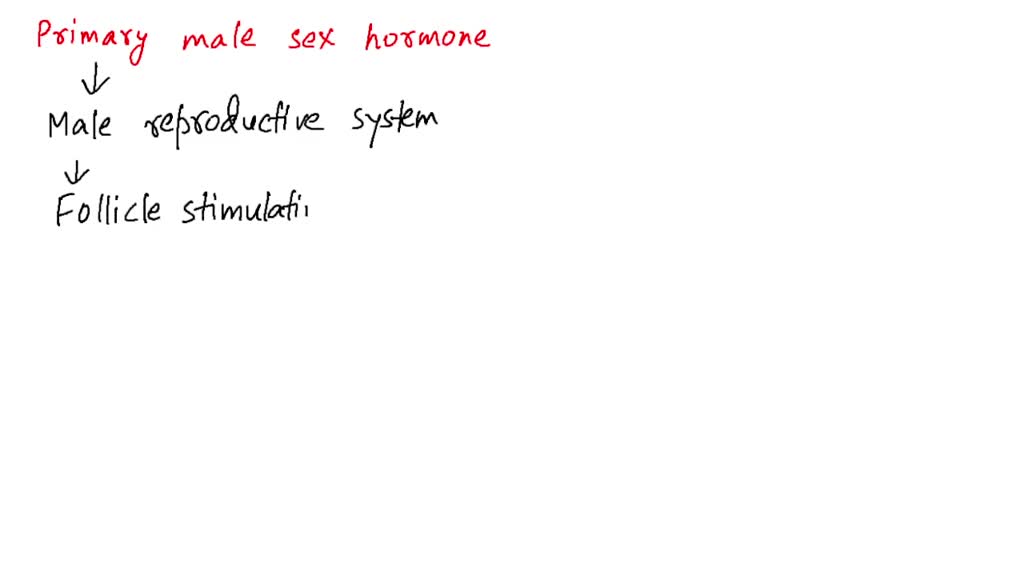 Primary male sex hormone
↓
Male reproductive system
↓
Follicle stimulati